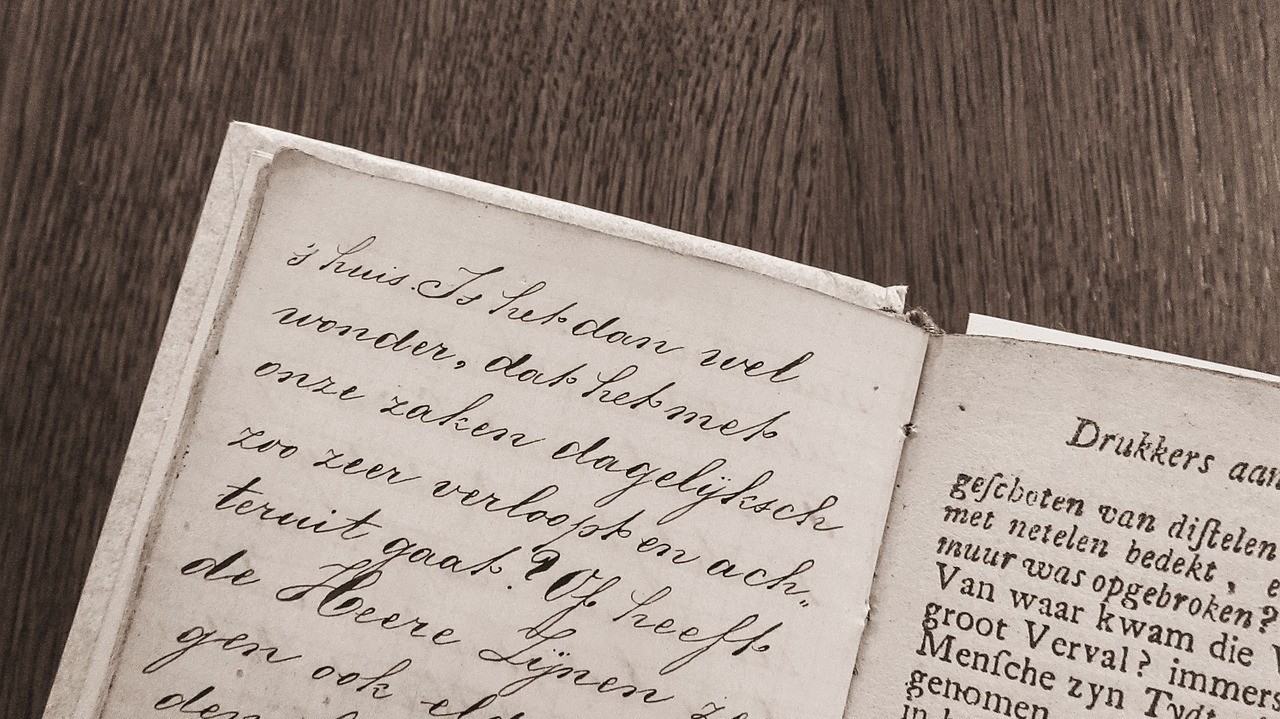 's huis. Is het dan wel
wonder, dat het met
onze zaken dagelijksch
zoo zeer verloopt en ach„
teruit gaat? Of heeft
de Heere Zijnen
gen ook
Drukkers aan
geſchoten van diſtelen
met netelen bedekt,
muur was opgebroken?
Van waar kwam die
groot Verval? immers
Menſche zyn Tydt
genomen